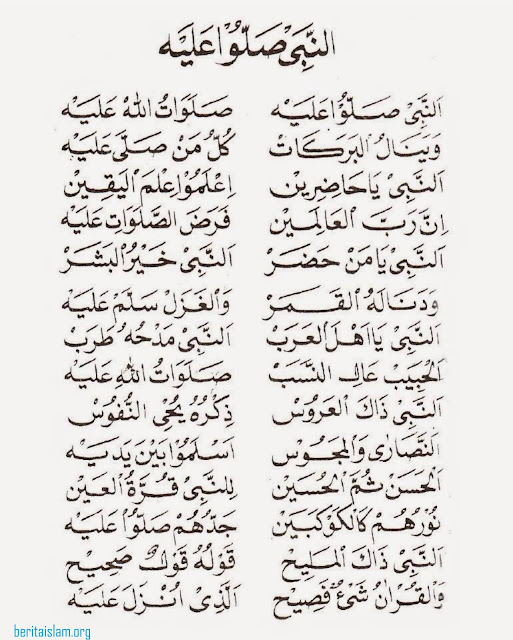 النَّبِيْ صَلُّوْا عَلَيْه
النَّبِيْ صَلُّوْا عَلَيْه صَلَوَاتُ اللهُ عَلَيْه
وَيَنَالُ الْبَرَكَاتْ كُلُّ مَنْ صَلَّى عَلَيْه
النَّبِيْ يَاحَاضِرِيْن اِعْلَمُوْا عِلْمَ الْيَقِيْن
اِنَّ رَبَّ الْعَالَمِيْن فَرَضَ الصَّلَوَاتِ عَلَيْه
النَّبِيْ يَامَنْ حَضَرْ النَّبِيْ خَيْرُ الْبَشَرْ
وَدَنَالَهُ الْقَمَرْ وَالْغَزَلْ سَلَّمْ عَلَيْه
النَّبِيْ يَااَهْلَ الْعَرَبْ النَّبِيْ مَدْحُهُ طَرَبْ
الْحَبِيْبْ عَالِى النَّسَبْ صَلَوَاتُ اللهِ عَلَيْه
النَّبِيْ ذَاكَ الْعَرُوْسْ ذِكْرُهُ يُحْيِى النُّفُوْسْ
النَّصَارَى وَالْمَجُوْسْ اَسْلَمُوْا بَيْنَ يَدَيْه
الْحَسَنْ ثُمَّ الْحُسَيْن لِلنَّبِيْ قُرَّةُ الْعَيْن
نُوْرُهُمْ كَالْكَوْكَبَيْن جَدُّهُمْ صَلُّوْا عَلَيْه
النَّبِيْ ذَاكَ الْمَلِيْحْ قَوْلُهُ قَوْلٌ صَحِيْحْ
وَالْقُرْاٰنُ شَىْءٌ فَصِيْحْ الَّذِى اُنْزِلَ عَلَيْه
beritaislam.org